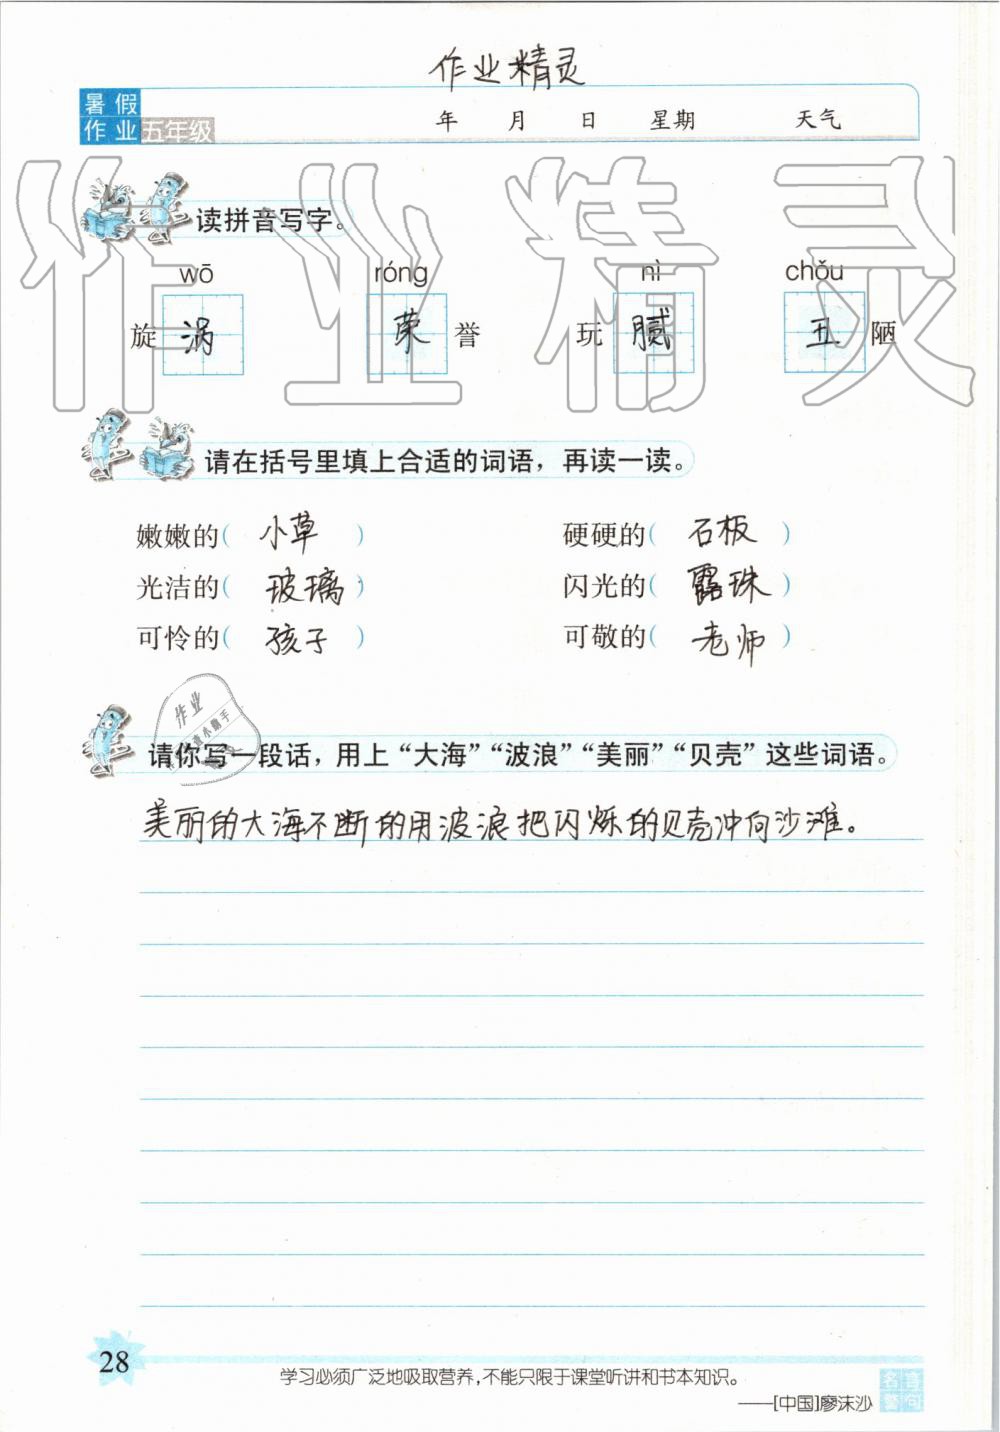 作业精灵
暑假
作业 五年级
年 月 日 星期 天气
作业精灵
读拼音写字。
wō róng nì chǒu
旋 涡 荣 誉 玩 腻 丑 陋
请在括号里填上合适的词语，再读一读。
嫩嫩的( 小草 ) 硬硬的( 石板 )
光洁的( 玻璃 ) 闪光的( 露珠 )
可怜的( 孩子 ) 可敬的( 老师 )
作业
请你写一段话，用上“大海”“波浪”“美丽”“贝壳”这些词语。
美丽的大海不断的用波浪把闪烁的贝壳冲向沙滩。
28
学习必须广泛地吸取营养，不能只限于课堂听讲和书本知识。
——[中国]廖沫沙
名言
警句